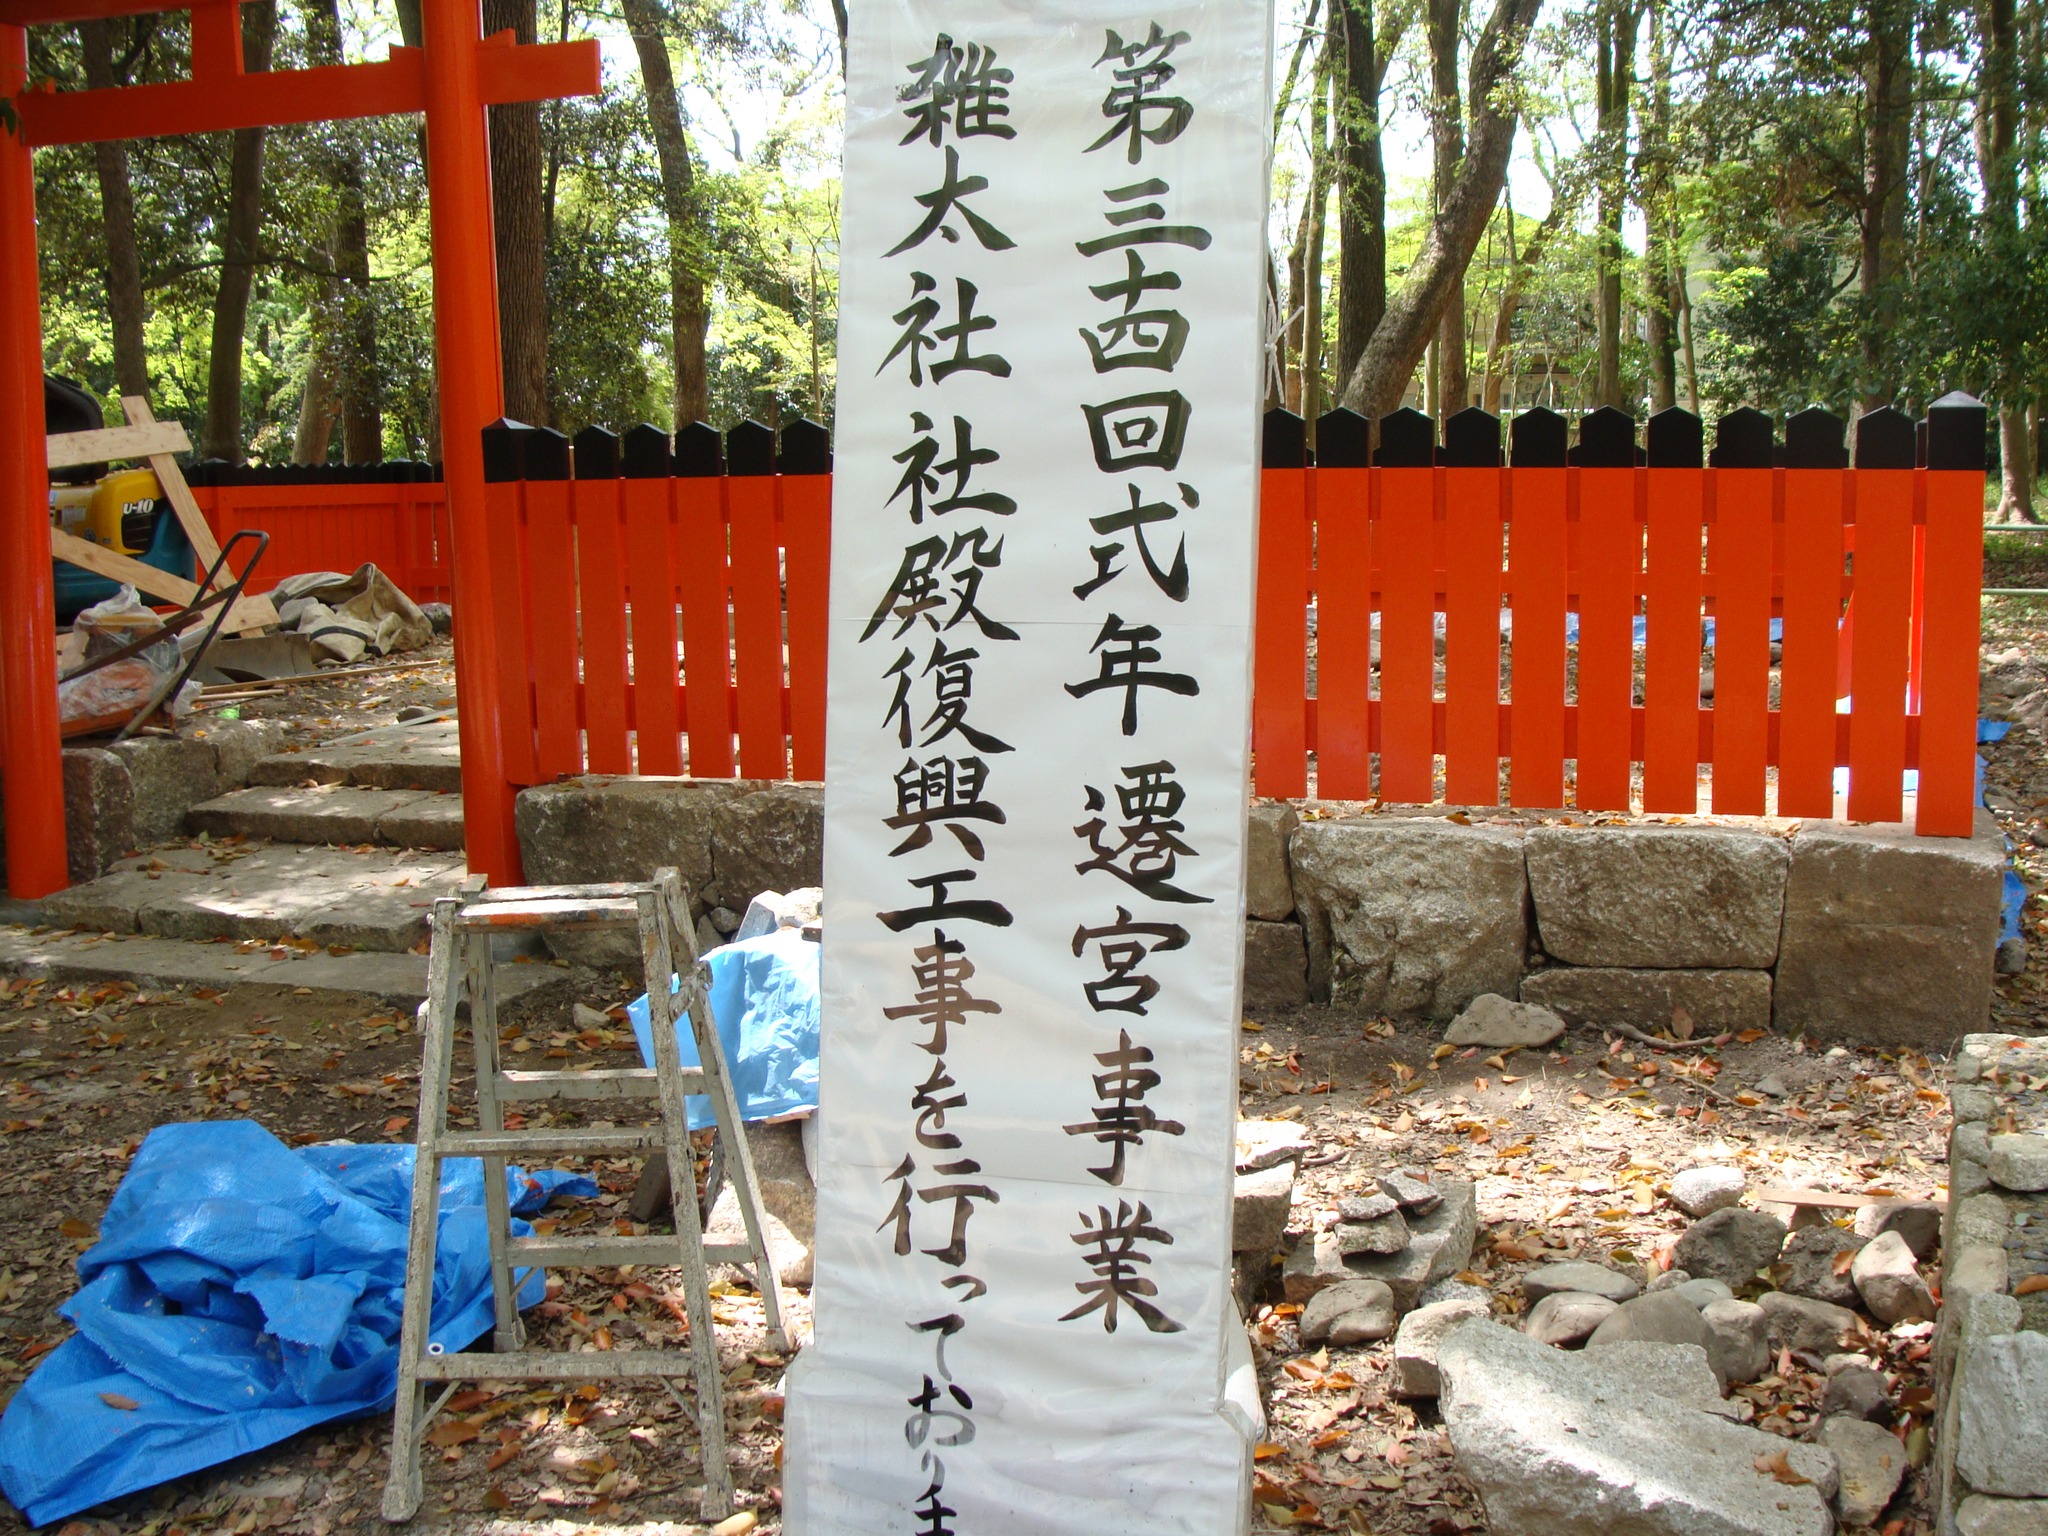 第三十四回式年遷宮事業
雑太社社殿復興工事を行っており
U-10